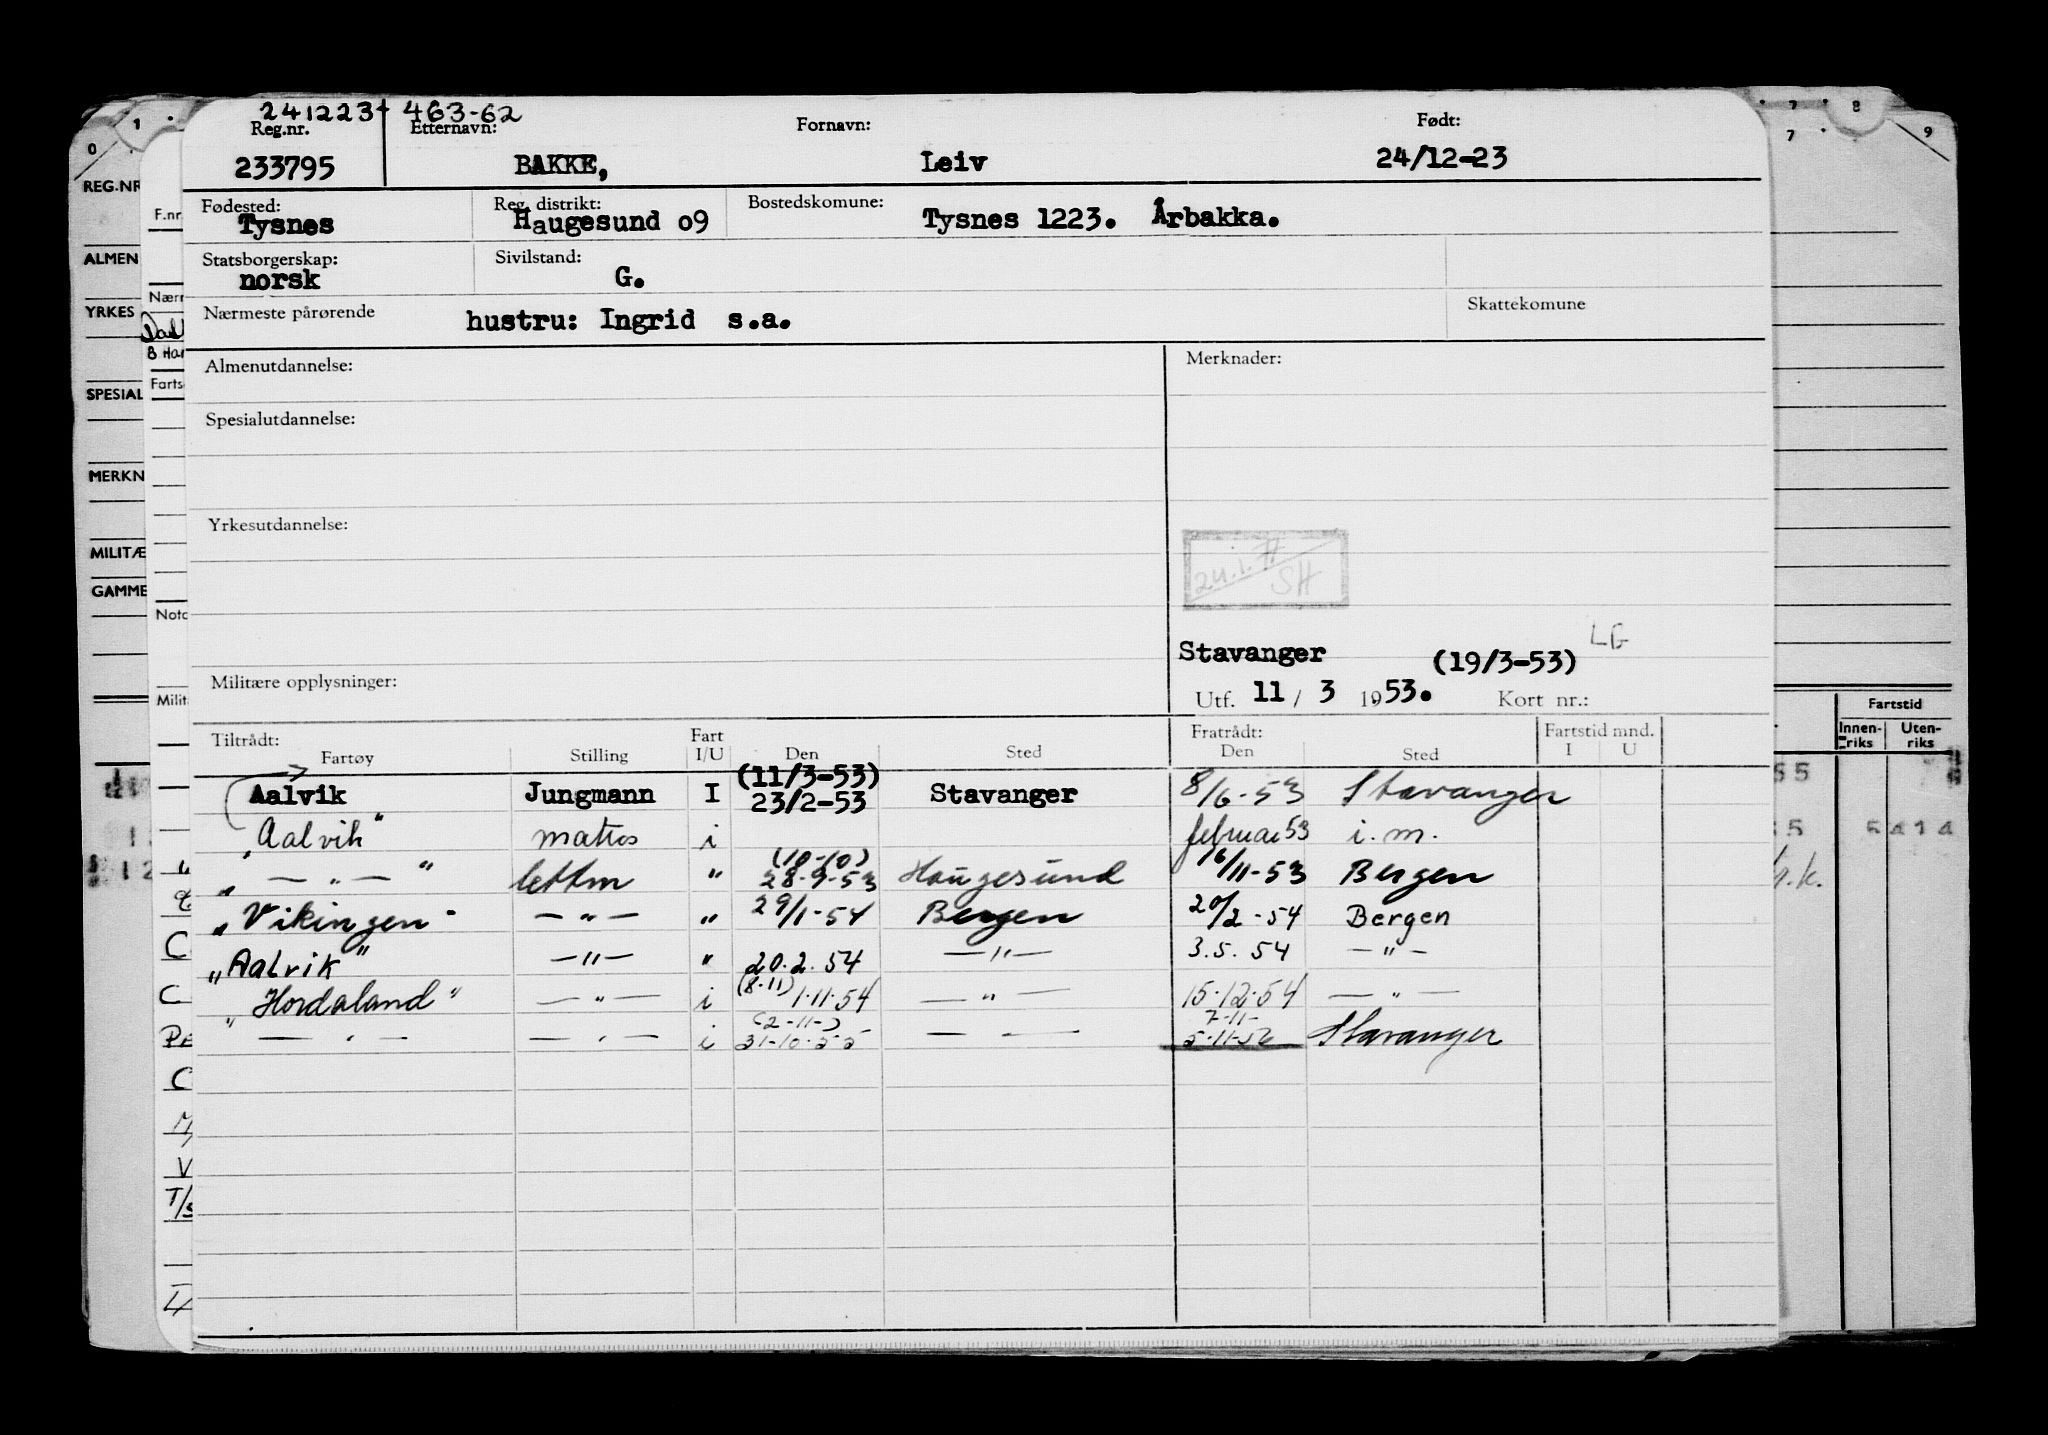 241223 463-62
Reg.nr. Etternavn: Fornavn: Født:
233795 BAKKE, Leiv 24/12-23
Fødested: Reg. distrikt: Bostedskomune:
Tysnes Haugesund o9 Tysnes 1223. Årbakka.
Statsborgerskap: Sivilstand:
norsk G.
Nærmeste pårørende Skattekomune
hustru: Ingrid s.a.
Almenutdannelse: Merknader:
Spesialutdannelse:
Yrkesutdannelse:
SH
LG
Stavanger (19/3-53)
Militære opplysninger: Utf. 11 / 3 1953. Kort nr.:
Tiltrådt: Fart Fratrådt: Fartstid mnd.
Fartøy Stilling I/U Den Sted Den Sted I U
(11/3-53)
Aalvik Jungmann I 23/2-53 Stavanger 8/6-53 Stavanger
"Aalvik" matros i februar 53 i.m.
(10-10)
" — " — " lettm " 28-9-53 Haugesund 16/11-53 Bergen
"Vikingen" — " — " 29/1-54 Bergen 20/2-54 Bergen
"Aalvik" — " — " 20.2.54 — " — 3.5.54 — " —
(8-11)
"Hordaland" — " — i 1.11.54 — " — 15.12.54 — " —
(2-11-) 7-11-
— " — — " — i 31-10-55 — " — 5-11-56 Stavanger
0 1 7 8 7 9
REG.NR
ALMEN
YRKES
SPESIAL
MERKN
MILITÆ
GAMME
F.nr
Nærm
B Har
Farts
Nota
Milit
Fartstid
Innen-riks Uten-riks
T/s